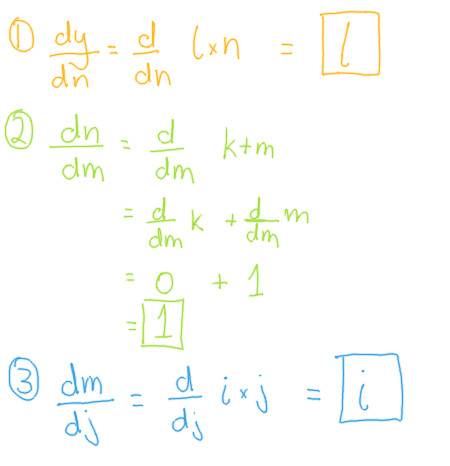 ① dy/dn = d/dn l×n = l
② dn/dm = d/dm k+m
= d/dm k + d/dm m
= 0 + 1
= 1
③ dm/dj = d/dj i×j = i